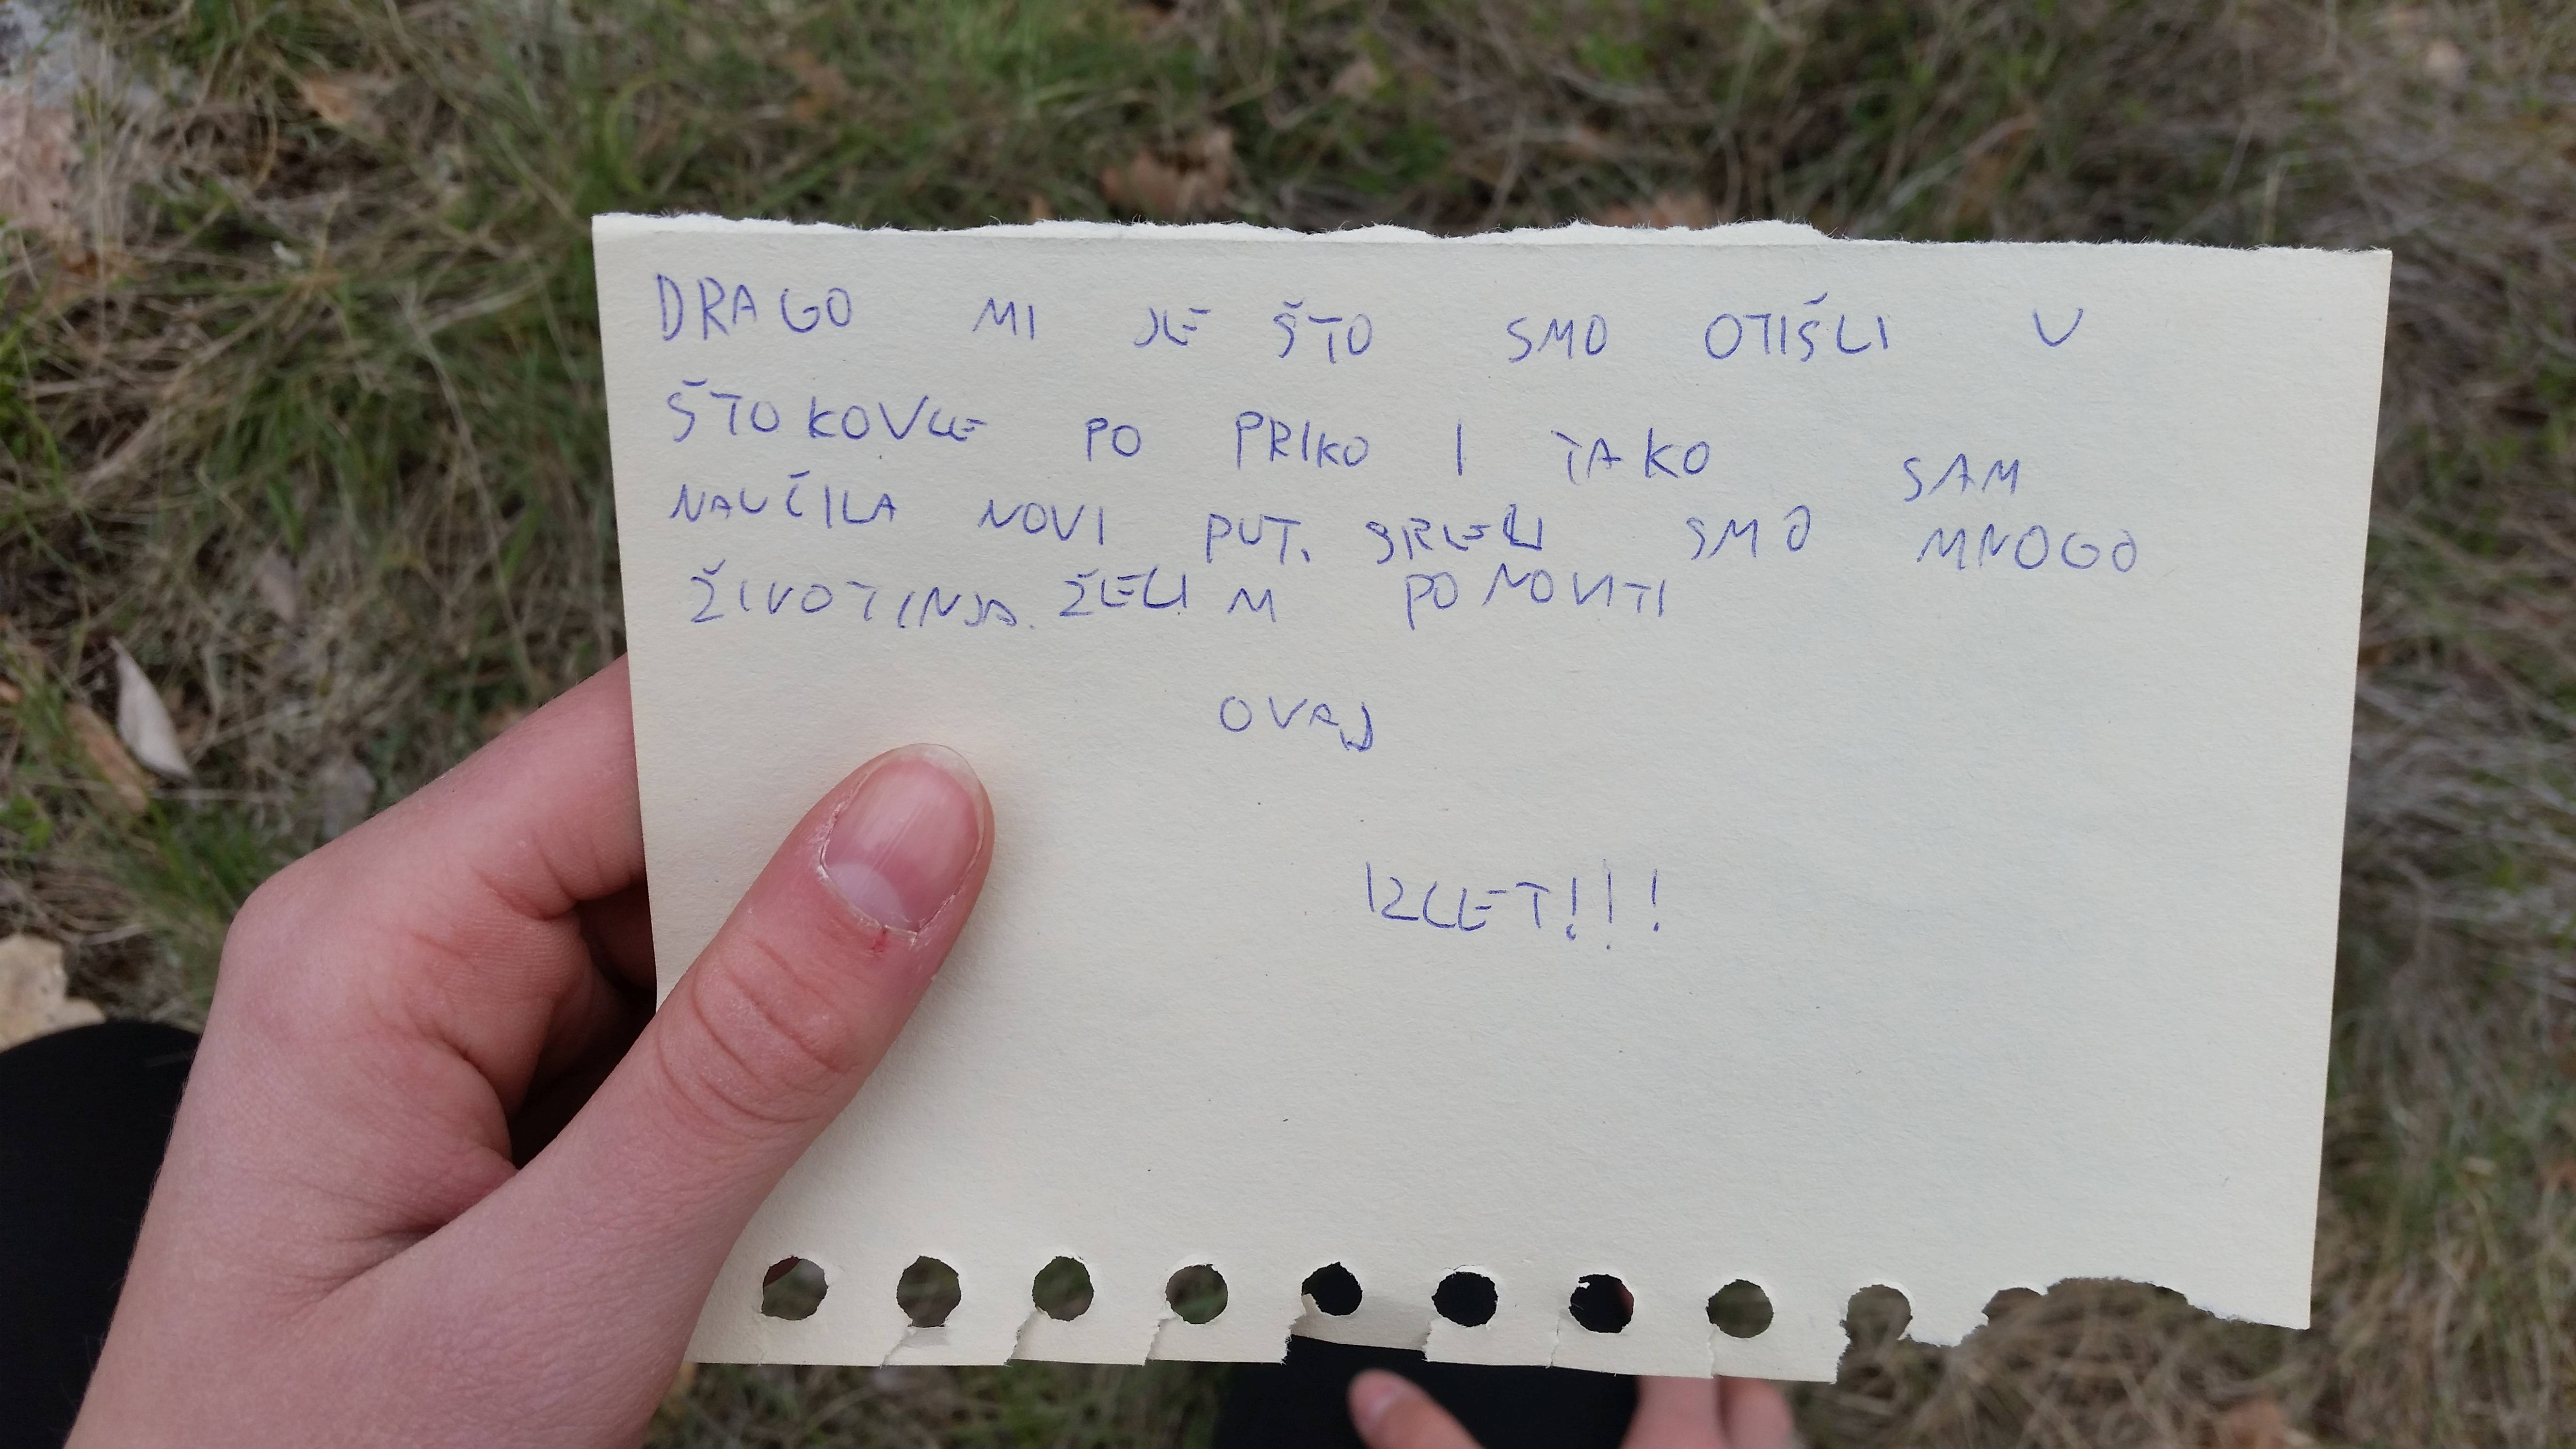 DRAGO MI JE ŠTO SMO OTIŠLI U
ŠTOKOVCE PO PRIKO I TAKO SAM
NAUČILA NOVI PUT. SRELI SMO MNOGO
ŽIVOTINJA. ŽELIM PONOVITI
OVAJ
IZLET!!!